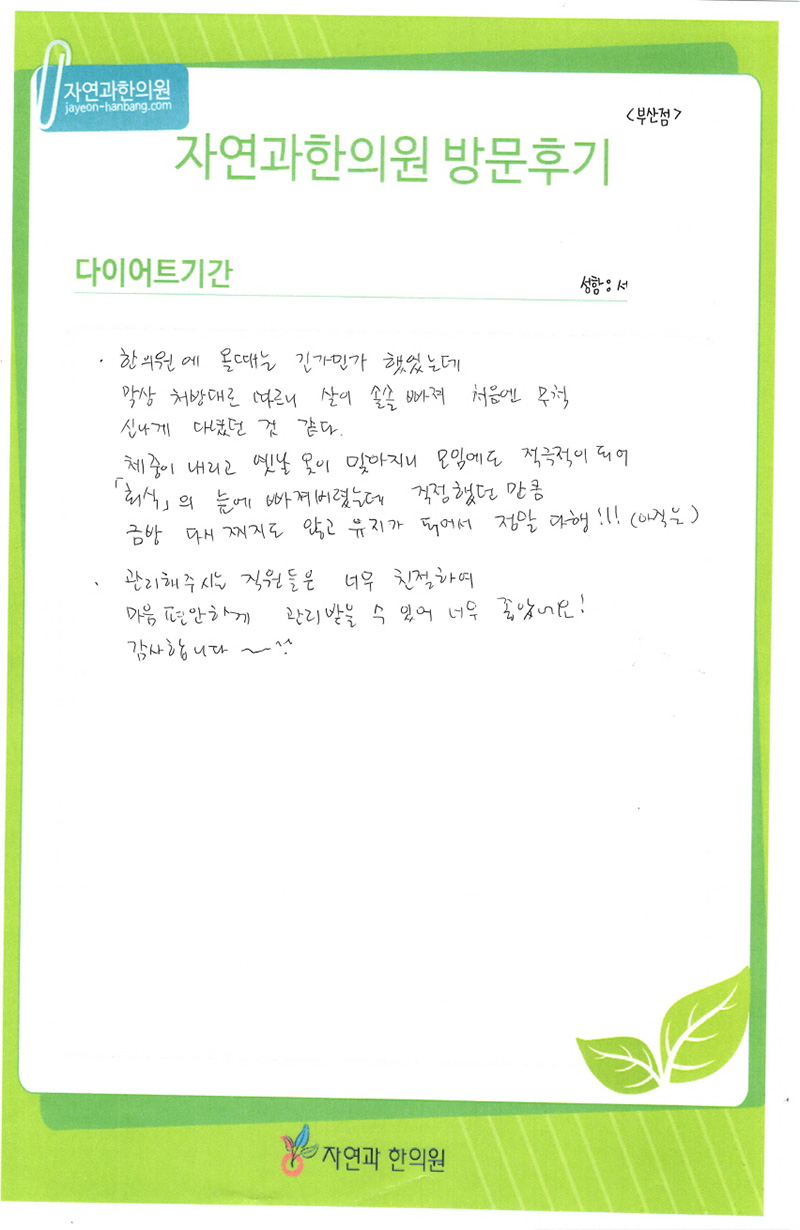 자연과한의원
jayeon-hanbang.com
<부산점>
자연과한의원 방문후기
다이어트기간
성함 : 서
· 한의원에 올때는 긴가민가 했었는데
막상 처방대로 따르니 살이 솔솔 빠져 처음엔 무척
신나게 다녔던 것 같다.
체중이 내리고 옛날 옷이 맞아지니 모임에도 적극적이 되어
「회식」의 늪에 빠져버렸는데 걱정했던 만큼
금방 다시 찌지도 않고 유지가 되어서 정말 다행!!! (아직은)
· 관리해주시는 직원들은 너무 친절하여
마음 편안하게 관리받을 수 있어 너무 좋았네요!
감사합니다 ~ ^^
자연과 한의원